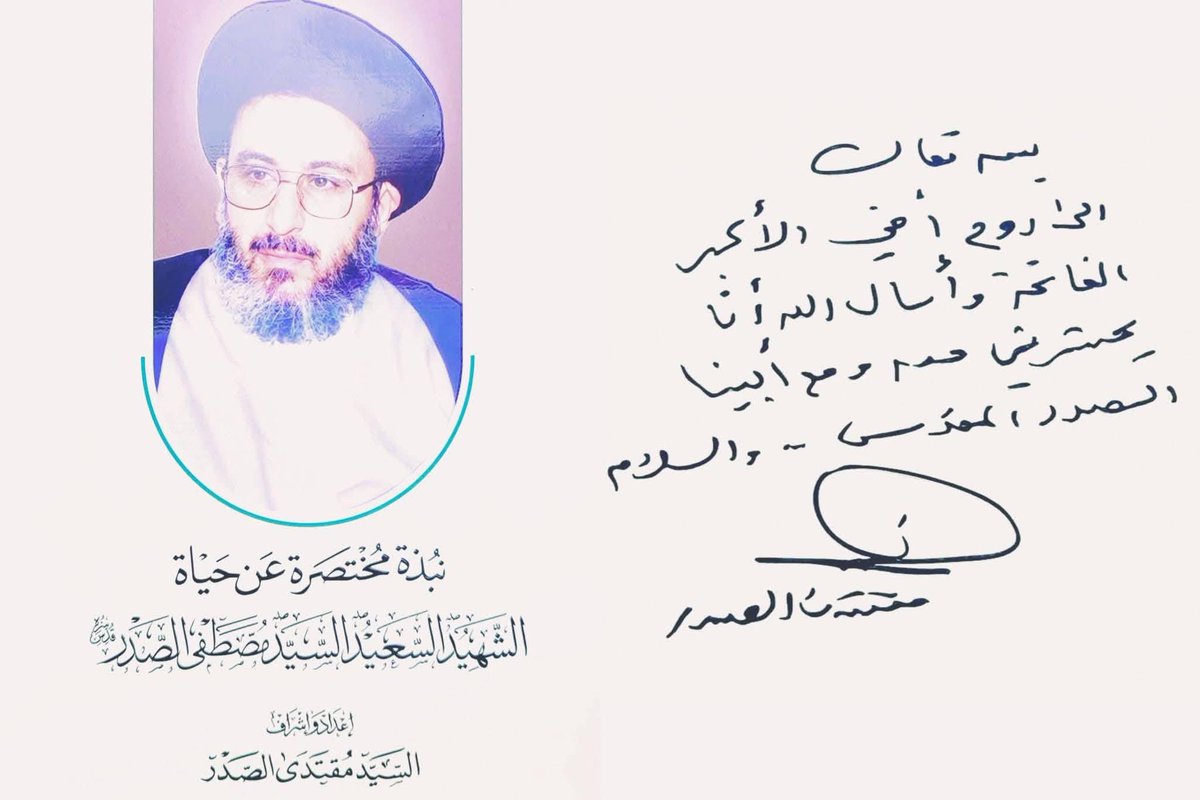 نُبْذَة مُخْتَصَرَة عَن حَيَاة
الشَّهِيْد السَّعِيْد السَّيِّد مُصْطَفَى الصَّدْر
إعْدَاد وَإشْرَاف
السَّيِّد مُقْتَدَى الصَّدْر
بسمه تعالى
الى روح أخي الأكبر
الفاتحة وأسال الله أن
يحشرني معه ومع أبينا
السيد الصدر المقدس .. والسلام
مقتدى الصدر